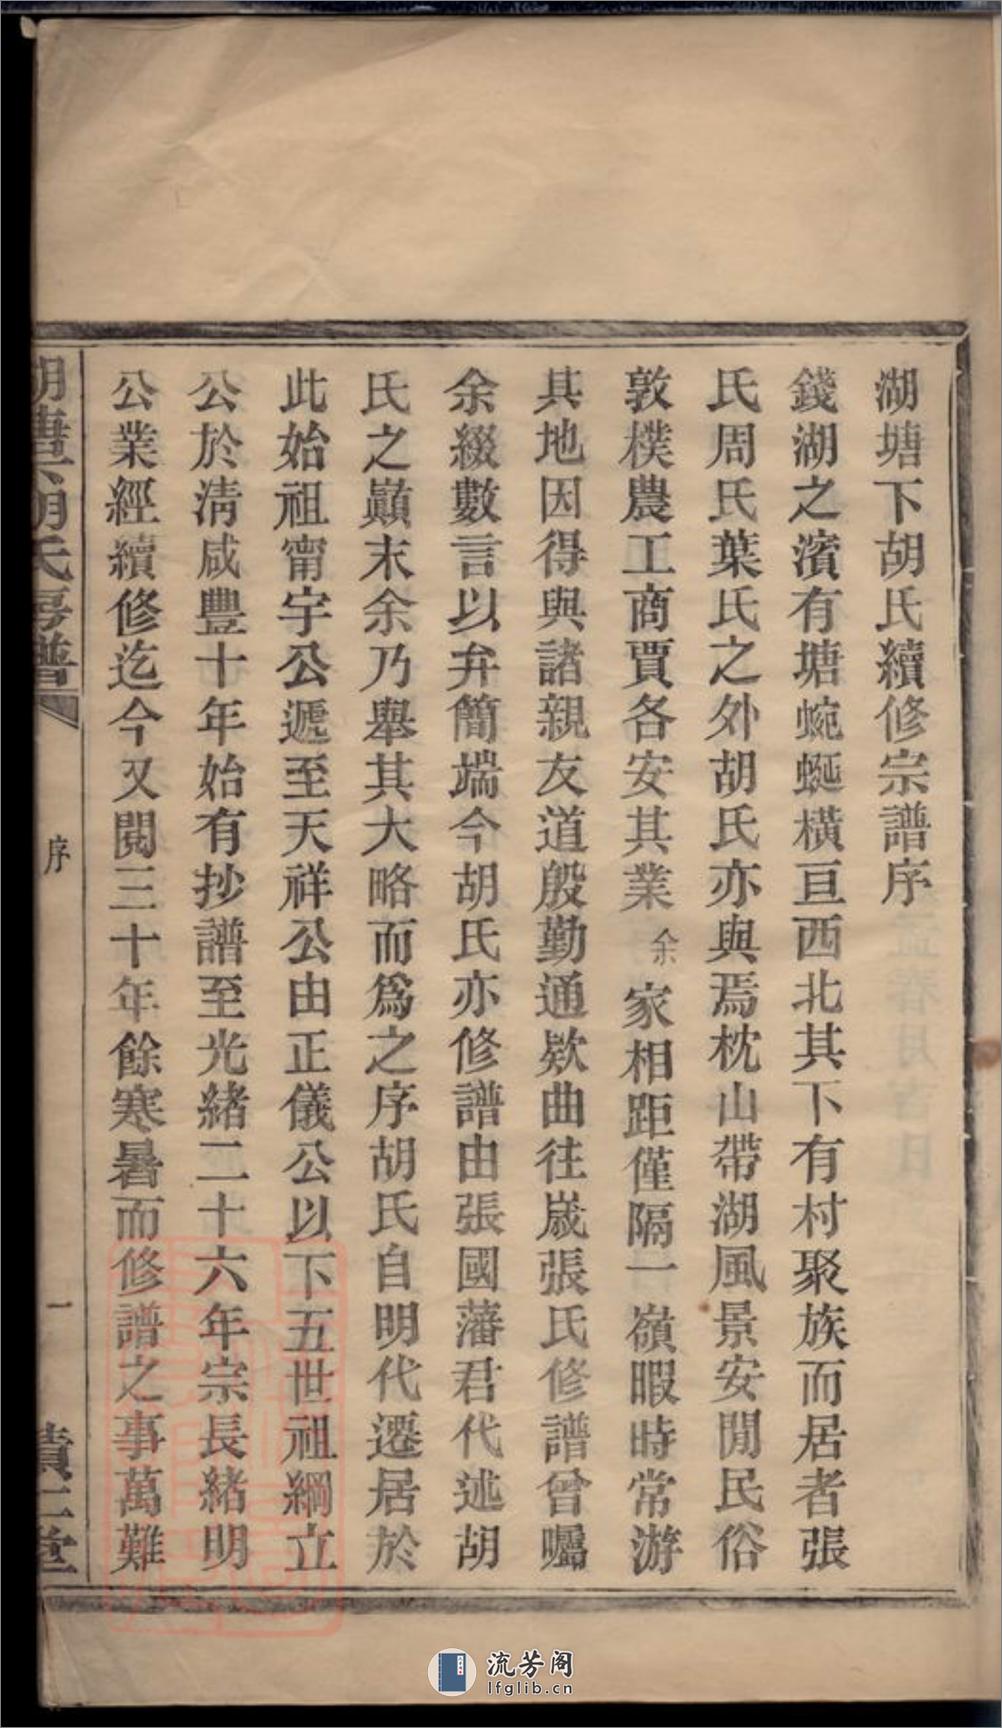 湖塘下胡氏續修宗譜序
錢湖之濱有塘蜿蜒橫亘西北其下有村聚族而居者張
氏周氏葉氏之外胡氏亦與焉枕山帶湖風景安閒民俗
敦樸農工商賈各安其業余家相距僅隔一嶺暇時常游
其地因得與諸親友道殷勤通欵曲往嵗張氏修譜曾囑
余綴數言以弁簡端今胡氏亦修譜由張國藩君代述胡
氏之巔末余乃舉其大略而爲之序胡氏自明代遷居於
此始祖甯宇公遞至天祥公由正儀公以下五世祖綱立
公於淸咸豐十年始有抄譜至光緒二十六年宗長緒明
公業經續修迄今又閱三十年餘寒暑而修譜之事萬難
湖塘下胡氏房譜
序
一
流芳阁
lfglib.cn